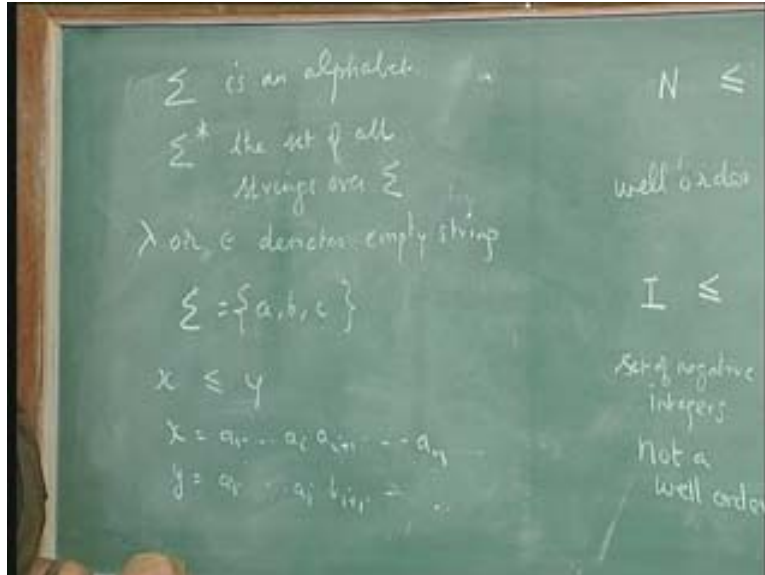 Σ is an alphabet
Σ* the set of all
strings over Σ
λ or ∈ denotes empty string
Σ = {a, b, c}
x ≤ y
x = a₁ ... aᵢ aᵢ₊₁ ... aₙ
y = a₁ ... aᵢ bᵢ₊₁ ...
N ≤
well order
I ≤
set of negative
integers
not a
well order